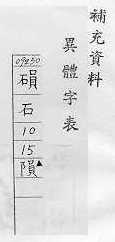 補充資料
異體字表
09850
磒
石
10
15
隕▲